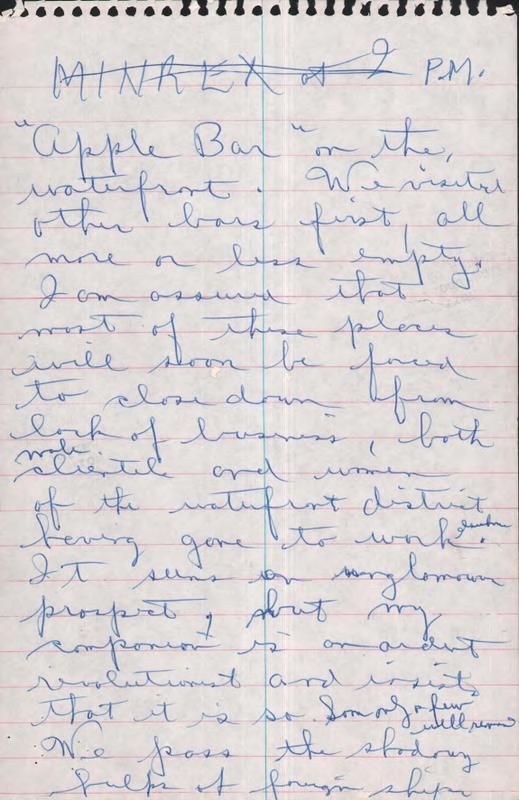 MINREX at 2 P.M.
"Apple Bar" on the
waterfront. We visited
other bars first, all
more or less empty.
I am assured that
most of these places
will soon be forced
to close down from
lack of business, both
male
clientele and women
of the waterfront district
having gone to work elsewhere.
It seems an unglamorous
prospect, but my
companion is an ardent
revolutionist and insists
that it is so. Som only a few
will remain
We pass the shadowy
hulks of foreign ships